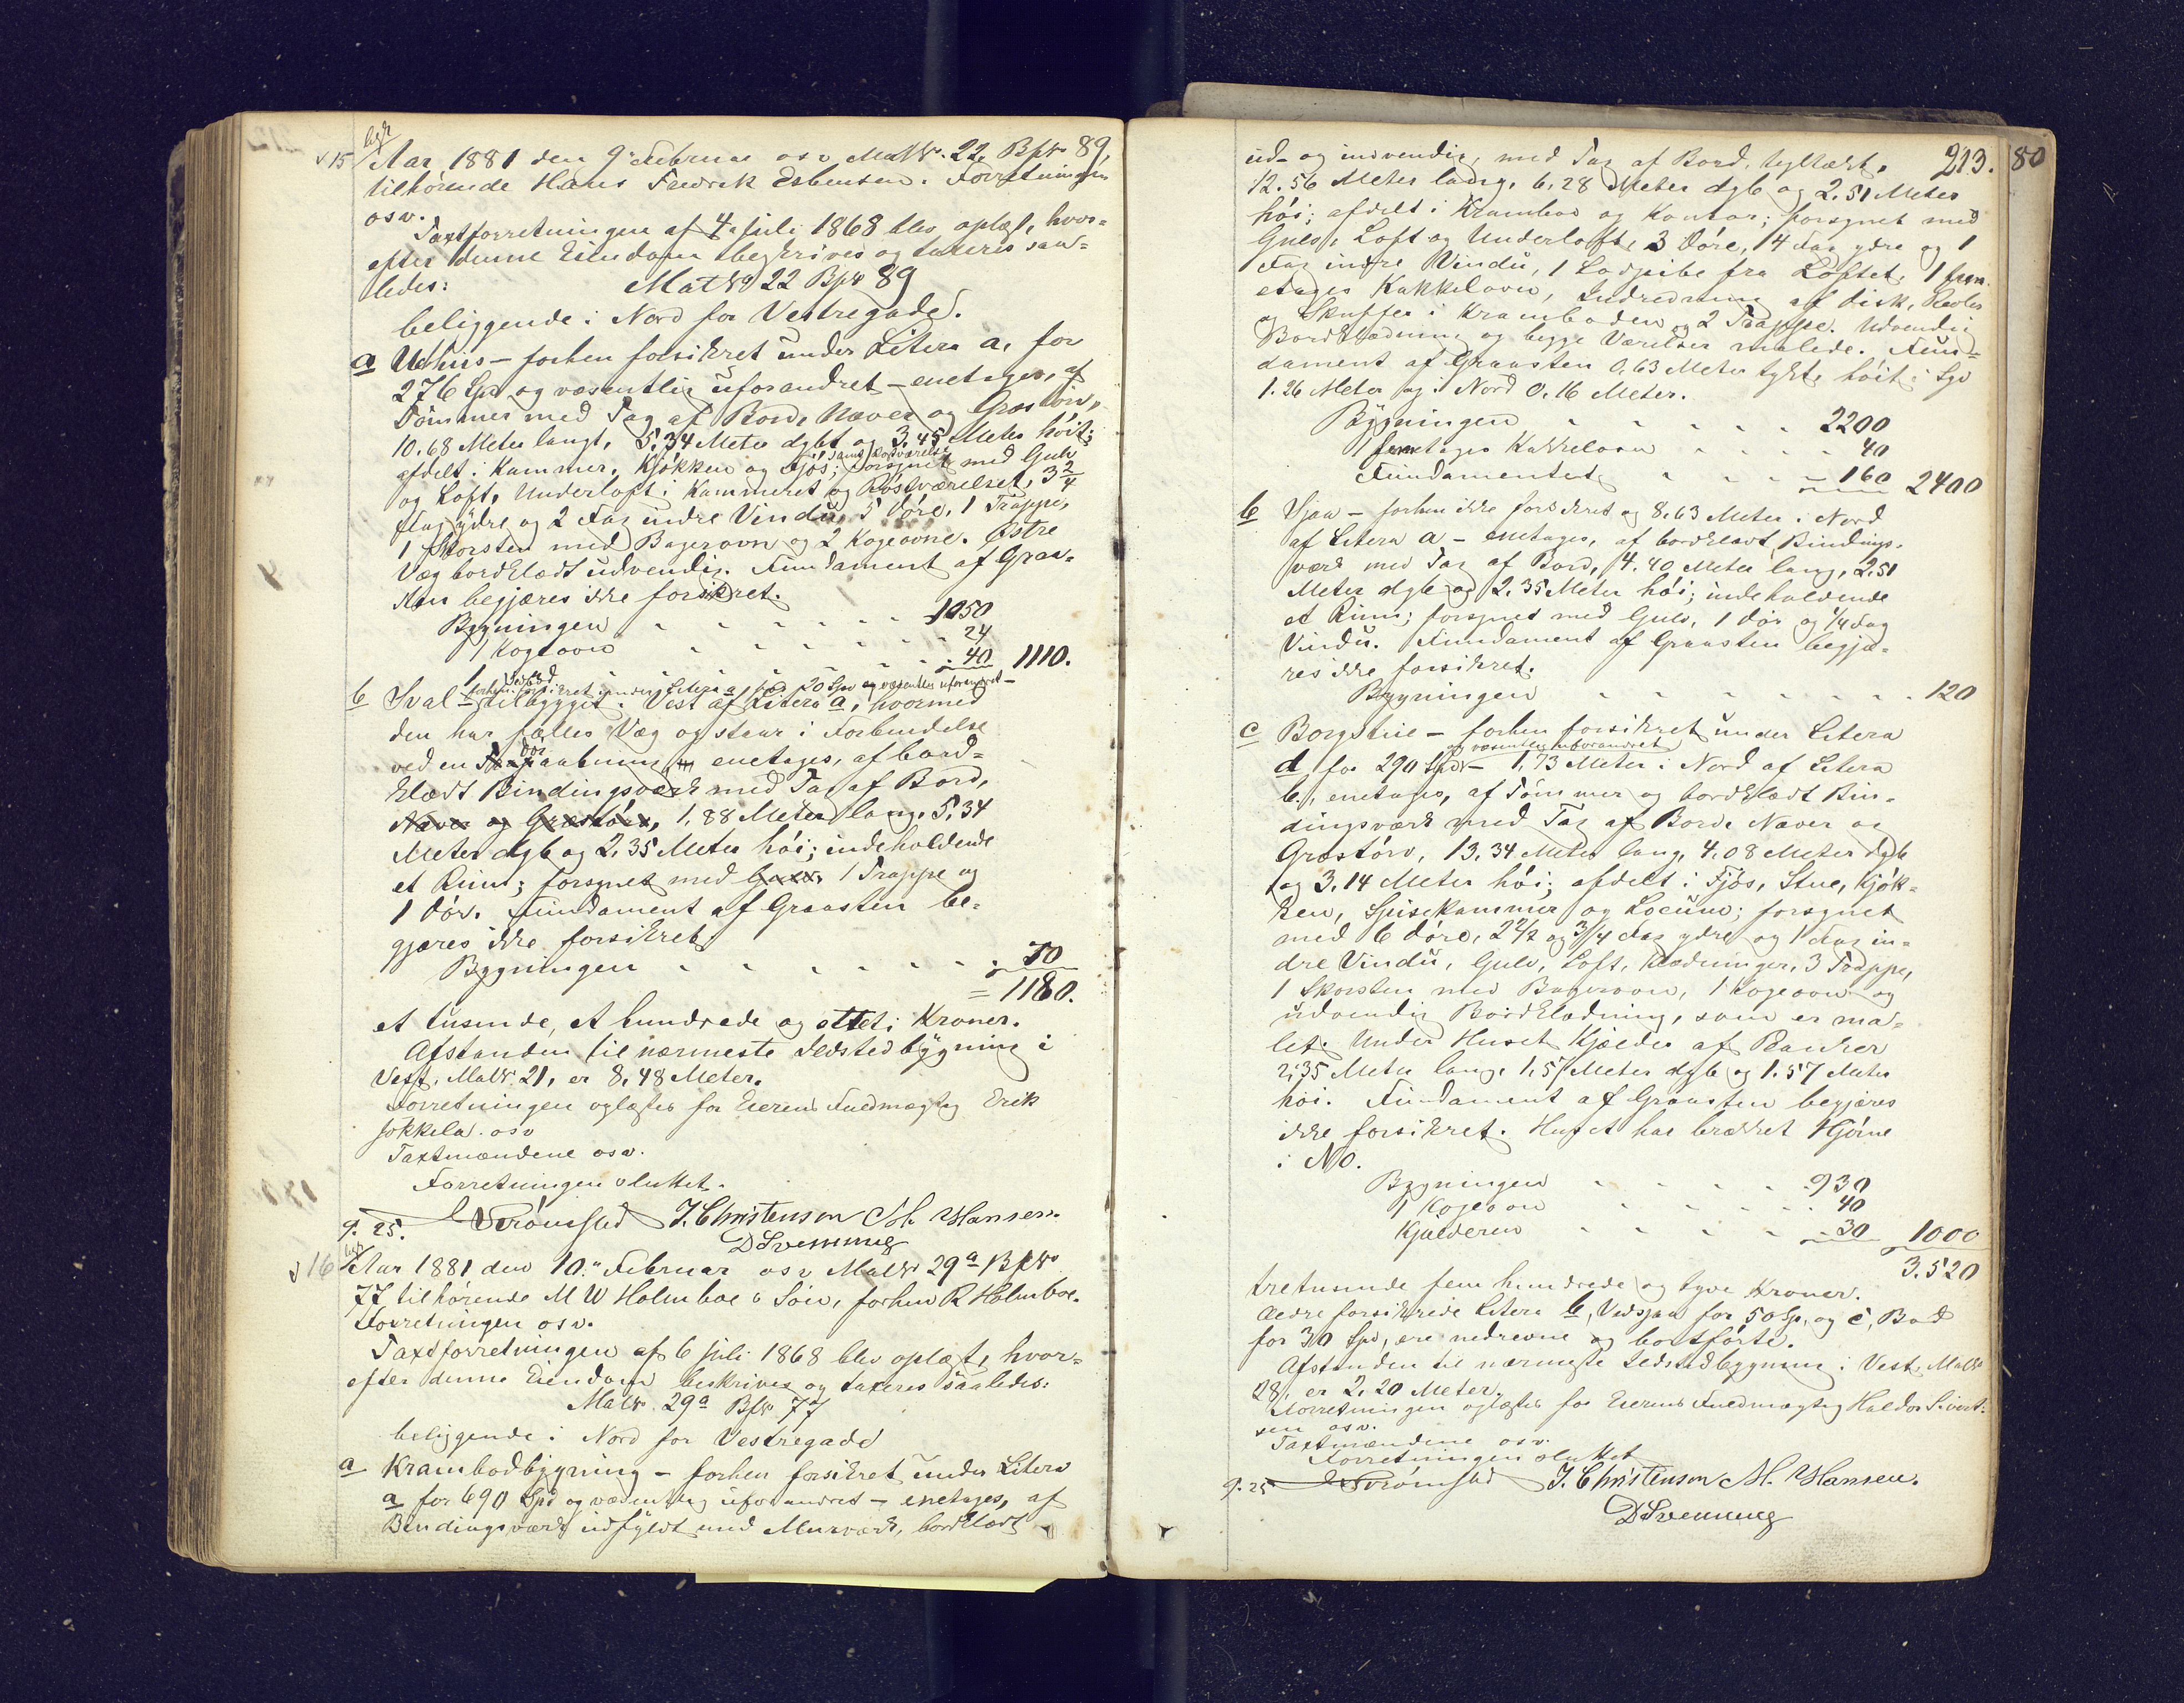 15 Aar 1881 den 9. Februar osv MatNr. 22, BpNr 89,
tilhørende Hans Fredrik Esbensen. Forretningen
osv.
Taxtforretningen af 4. juli 1868 blev oplæst, hvor-
efter denne Eiendom beskrives og taxeres saa-
ledes:
MatNr 22 BpNr 89
beliggende i Nord for Vestregade.
a Udhus - forhen forsikret under Litera a, for
276 Spd og væsentlig uforandret - enetages, af
Tömmer med Tag af Bord, Næver og Græstörv,
10.68 Meter langt, 5,34 Meter dybt og 3.45 Meter höit;
afdelt i Kammer, Kjökken og Fjös; forsynet med Gulv
og Loft, Underloft i Kammeret og Rostværelset, 3 2/4
Fag ydre og 2 Fag indre Vindu, 5 Döre, 1 Trappe,
1 Skorsten med Bagerovn og 2 Kogeovne. Østre
Væg bordklædt udvendig. Fundament af Graa-
sten begjæres ikke forsikret.
Bygningen 1050
1 Kogeovn 24
1 40 1110.
forhen forsikret under Litera a for 20 Spd og væsentlig uforandret -
b Sval - tilbygget i Vest af Litera a, hvormed
den har fælles Væg og staar i Forbindelse
ved en döraabning enetages, af bord-
klædt Bindingsværk med Tag af Bord,
Næver og Græstörv, 1,88 Meter lang, 5,34
Meter dyb og 2,35 Meter höi; indeholdende
et Rum; forsynet med Gulv, 1 Trappe og
1 Dör. Fundament af Graasten be-
gjæres ikke forsikret
Bygningen 70
= 1180.
et tusinde, et hundrede og otteti Kroner.
Afstanden til nærmeste Ildstedbygning i
Vest, MatNr. 21, er 8,48 Meter.
Forretningen oplæstes for Eierens Fuldmægtig Erik
Jokkela osv
Taxtmændene osv.
Forretningen sluttet.
9. 25. J. Christensen M. Hansen.
D Svenning
16 Aar 1881 den 10. Februar osv MatNr 29a BpNr
77 tilhørende M W Holmboe & Sön, forhen R Holmboe.
Forretningen osv.
Taxtforretningen af 6 juli 1868 blev oplæst, hvor-
efter denne Eiendom beskrives og taxeres saaledes:
MatNr. 29a BpNr 77
beliggende i Nord for Vestregade
a Krambodbygning - forhen forsikret under Litera
a for 690 Spd og væsentlig uforandret - enetages, af
Bindingsværk udfyldt med Murværk, bordklædt
213. 80
ud- og indvendig, med Tag af Bord, tegltækt,
12.56 Meter lang, 6,28 Meter dyb og 2,51 Meter
höi; afdelt i Krambod og Kontor; forsynet med
Gulv, Loft og Underloft, 3 Döre, 14 Fag ydre og 1
Fag indre Vindu, 1 Lodpibe fra Loftet, 1 fem-
etages Kakkelovn, Indredning af Disk, Reoler
og Skuffer i Kramboden og 2 Trappe. Udvendig
Bordklædning og begge Værelser malede. Fun-
dament af Graasten 0,63 Meter tykt, höit i Syd
1.26 Meter og i Nord 0.16 Meter.
Bygningen 2200
1 femetages Kakkelovn 40
Fundamentet 160 2400
b Sjaa - forhen ikke forsikret og 8,63 Meter i Nord
af Litera a - enetages, af bordklædt Bindings-
værk med Tag af Bord, 4.40 Meter lang, 2,51
Meter dyb og 2,35 Meter höi; indeholdende
et Rum; forsynet med Gulv, 1 Dör og 1/4 Fag
Vindu. Fundament af Graasten begjæ-
res ikke forsikret.
Bygningen 120
c Borgstue - forhen forsikret under Litera
og væsentlig uforandret
d for 290 Spd - 1,73 Meter i Nord af Litera
b, enetages, af Tömmer og bordklædt Bin-
dingsværk med Tag af Bord, Næver og
Græstörv, 13,34 Meter lang, 4,08 Meter dyb
og 3,14 Meter höi; afdelt i Fjös, Stue, Kjök-
ken, Spisekammer og Locum; forsynet
med 6 Döre, 2 2/2 og 3/4 Fag ydre og 1 Fag in-
dre Vindu, Gulv, Loft, Klædninger, 3 Trappe,
1 Skorsten med Bagerovn, 1 Kogeovn og
udvendig Bordklædning, som er ma-
let. Under Huset Kjælder af Planker
2,35 Meter lang, 1,57 Meter dyb og 1.57 Meter
höi. Fundament af Graasten begjæres
ikke forsikret. Huset har brækket Hjörne
i NO.
Bygningen 930
1 Kogeovn 40
Kjælderen 30 1000
3.520
tretusinde fem hundrede og tyve Kroner.
Aedre forsikrede Litera b, Vedsjaa for 50 Sp, og c, Bod
for 30 Spd, ere nedrevne og bortförte.
Afstanden til nærmeste Ildstedbygning i Vest, MatNr
28, er 2,20 Meter.
Forretningen oplæstes for Eierens Fuldmægtig Haldor Sivert-
sen osv.
Taxtmændene osv.
Forretningen sluttet
9. 25 J. Christensen M. Hansen.
D Svenning